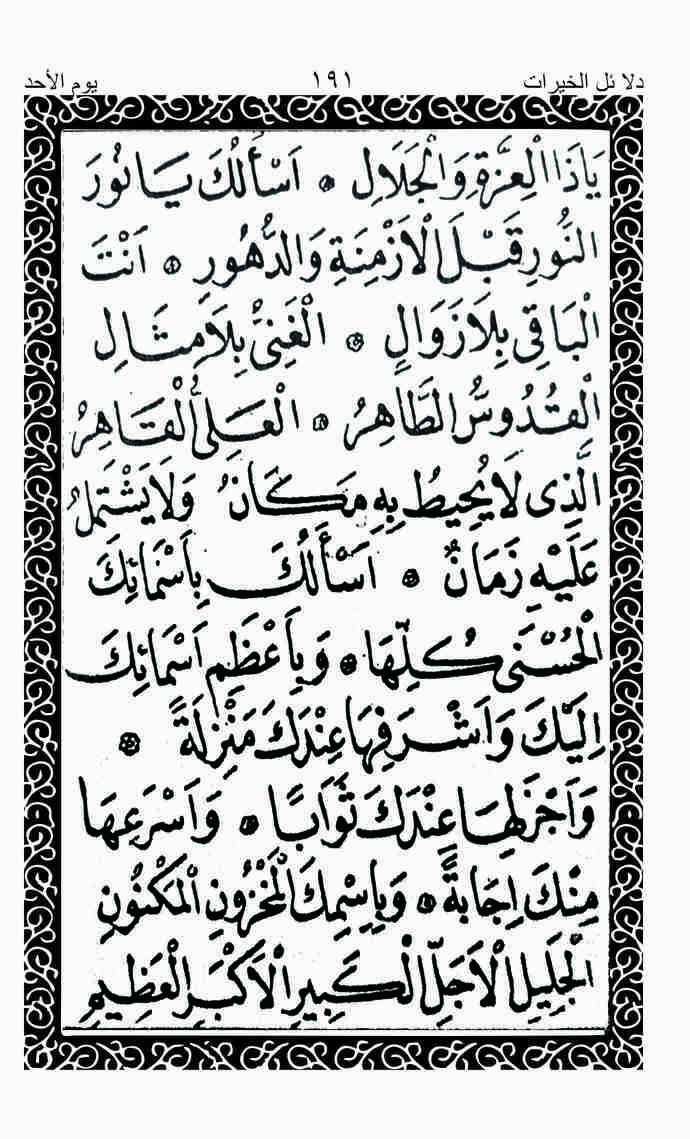 دلائل الخيرات ١٩١ يوم الأحد
يَاذَا الْعِزَّةِ وَالْجَلَالِ ۞ اَسْأَلُكَ يَا نُورَ
النُّورِ قَبْلَ الْاَزْمِنَةِ وَالدُّهُورِ ۞ اَنْتَ
الْبَاقِى بِلَا زَوَالٍ ۞ الْغَنِىُّ بِلَا مِثَالٍ
الْقُدُّوسُ الطَّاهِرُ ۞ الْعَلِىُّ الْقَاهِرُ
الَّذِى لَا يُحِيطُ بِهِ مَكَانٌ وَلَا يَشْتَمِلُ
عَلَيْهِ زَمَانٌ ۞ اَسْأَلُكَ بِاَسْمَائِكَ
الْحُسْنَى كُلِّهَا ۞ وَبِاَعْظَمِ اَسْمَائِكَ
اِلَيْكَ وَاَشْرَفِهَا عِنْدَكَ مَنْزِلَةً ۞
وَاَجْزَلِهَا عِنْدَكَ ثَوَابًا ۞ وَاَسْرَعِهَا
مِنْكَ اِجَابَةً ۞ وَبِاِسْمِكَ الْمَخْزُونِ الْمَكْنُونِ
الْجَلِيلِ الْاَجَلِّ الْكَبِيرِ الْاَكْبَرِ الْعَظِيمِ